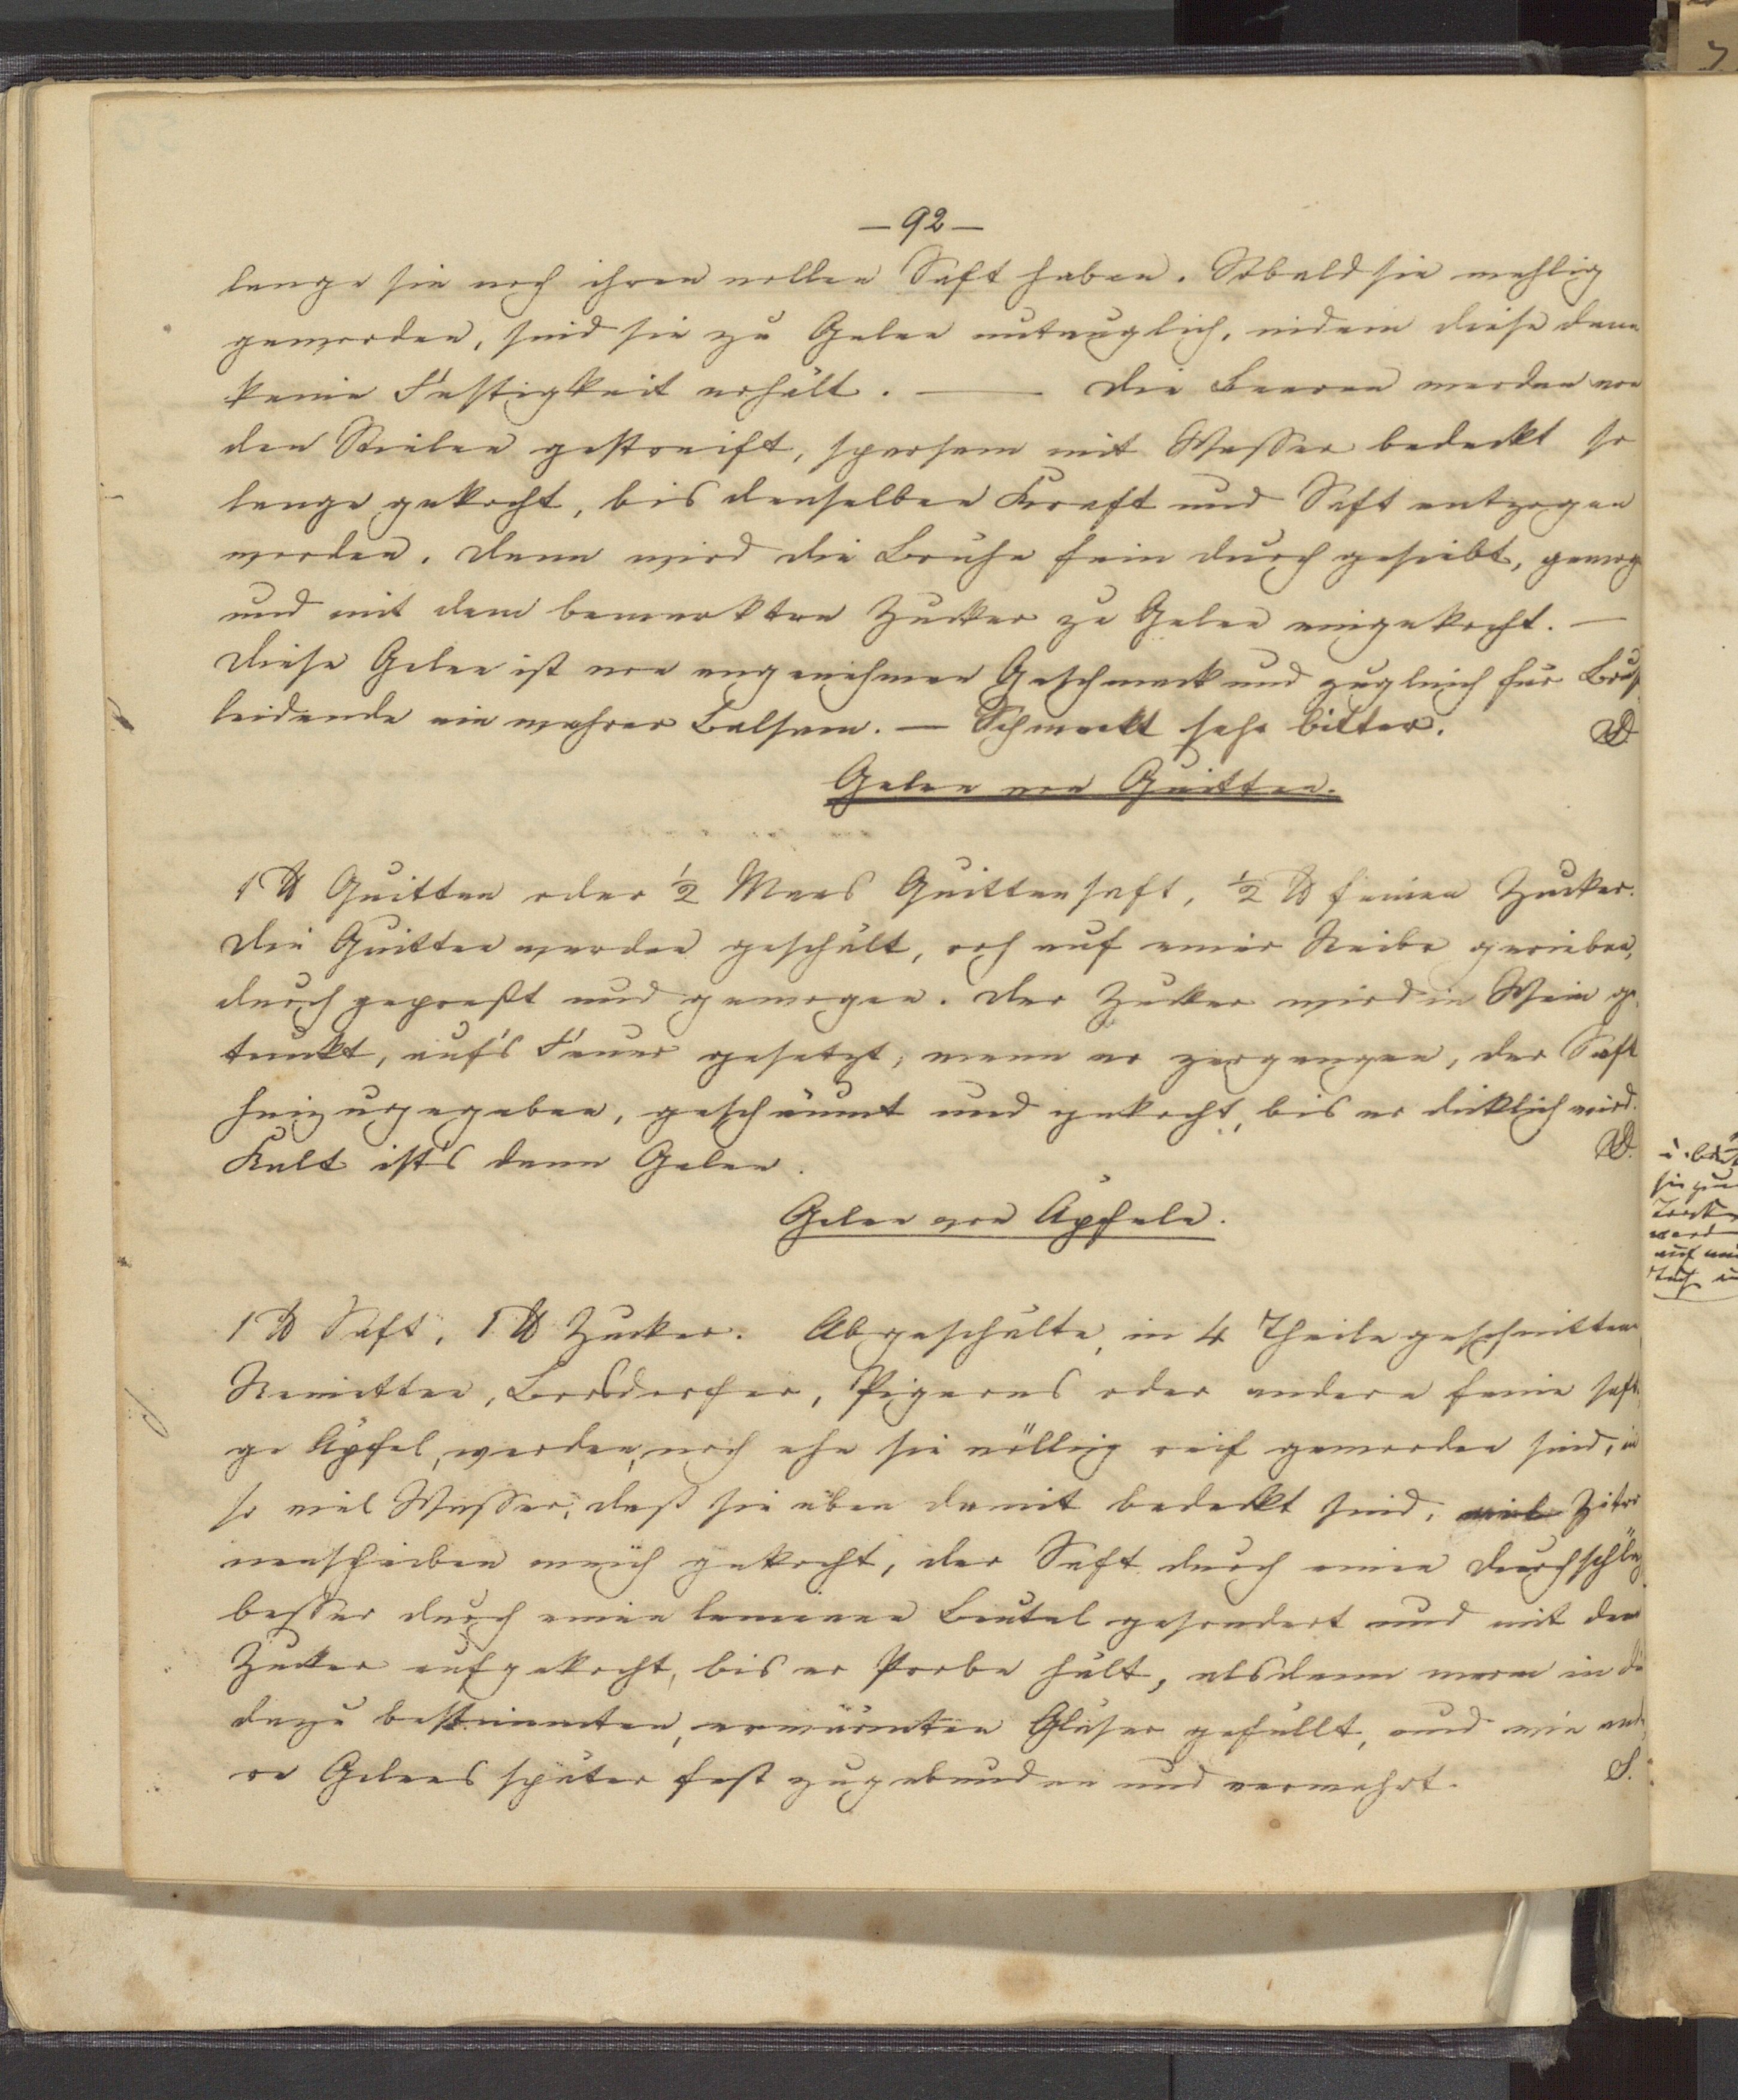 — 92 —
lange sie noch ihren vollen Saft haben. Sobald sie mehlig
geworden, sind sie zu Gelee untauglich, indem diese dann
keine Festigkeit erhält. — Die Beeren werden von
den Stielen gestreift, sparsam mit Wasser bedeckt so
lange gekocht, bis denselben Kraft und Saft entzogen
worden. Dann wird die Bruhe fein durch gesiebt, gewog
und mit dem bemerkten Zucker zu Gelee eingekocht. —
Diese Gelee ist von angenehmen Geschmack und zugleich für Brust
leidende ein wahrer Balsam. — Schmeckt sehr bitter. D.
Gelee von Quitten.
1 ℔ Quitten oder ½ Maas Quittensaft, ½ ℔ feinen Zucker.
Die Quitten werden geschält, roh auf einer Reibe gerieben,
durch gepreßt und gewogen. Der Zucker wird in Wein ge
tunkt, auf's Feuer gesetzt, wenn er zergangen, der Saft
hinzugegeben, geschäumt und gekocht, bis er dicklich wird.
Kalt ist's dann Gelee. D.
Gelee von Äpfeln.
1 ℔ Saft, 1 ℔ Zucker. Abgeschälte, in 4 Theile geschnittene
Reinetten, Borsdorfer, Pigeons oder andere feine saft
ge Äpfel, werden, noch ehe sie völlig reif geworden sind, in
so viel Wasser, daß sie eben damit bedeckt sind, Zitro
nenscheiben weich gekocht, der Saft durch einen Durchschlag
besser durch einen leinenen Beutel gesondert und mit dem
Zucker aufgekocht, bis er Probe hält, alsdann warm in die
dazu bestimmten, erwärmten Gläser gefüllt, und wie ande
re Gelees später fest zugebunden und verwahrt. S.
sie
werd
auf
Tuch